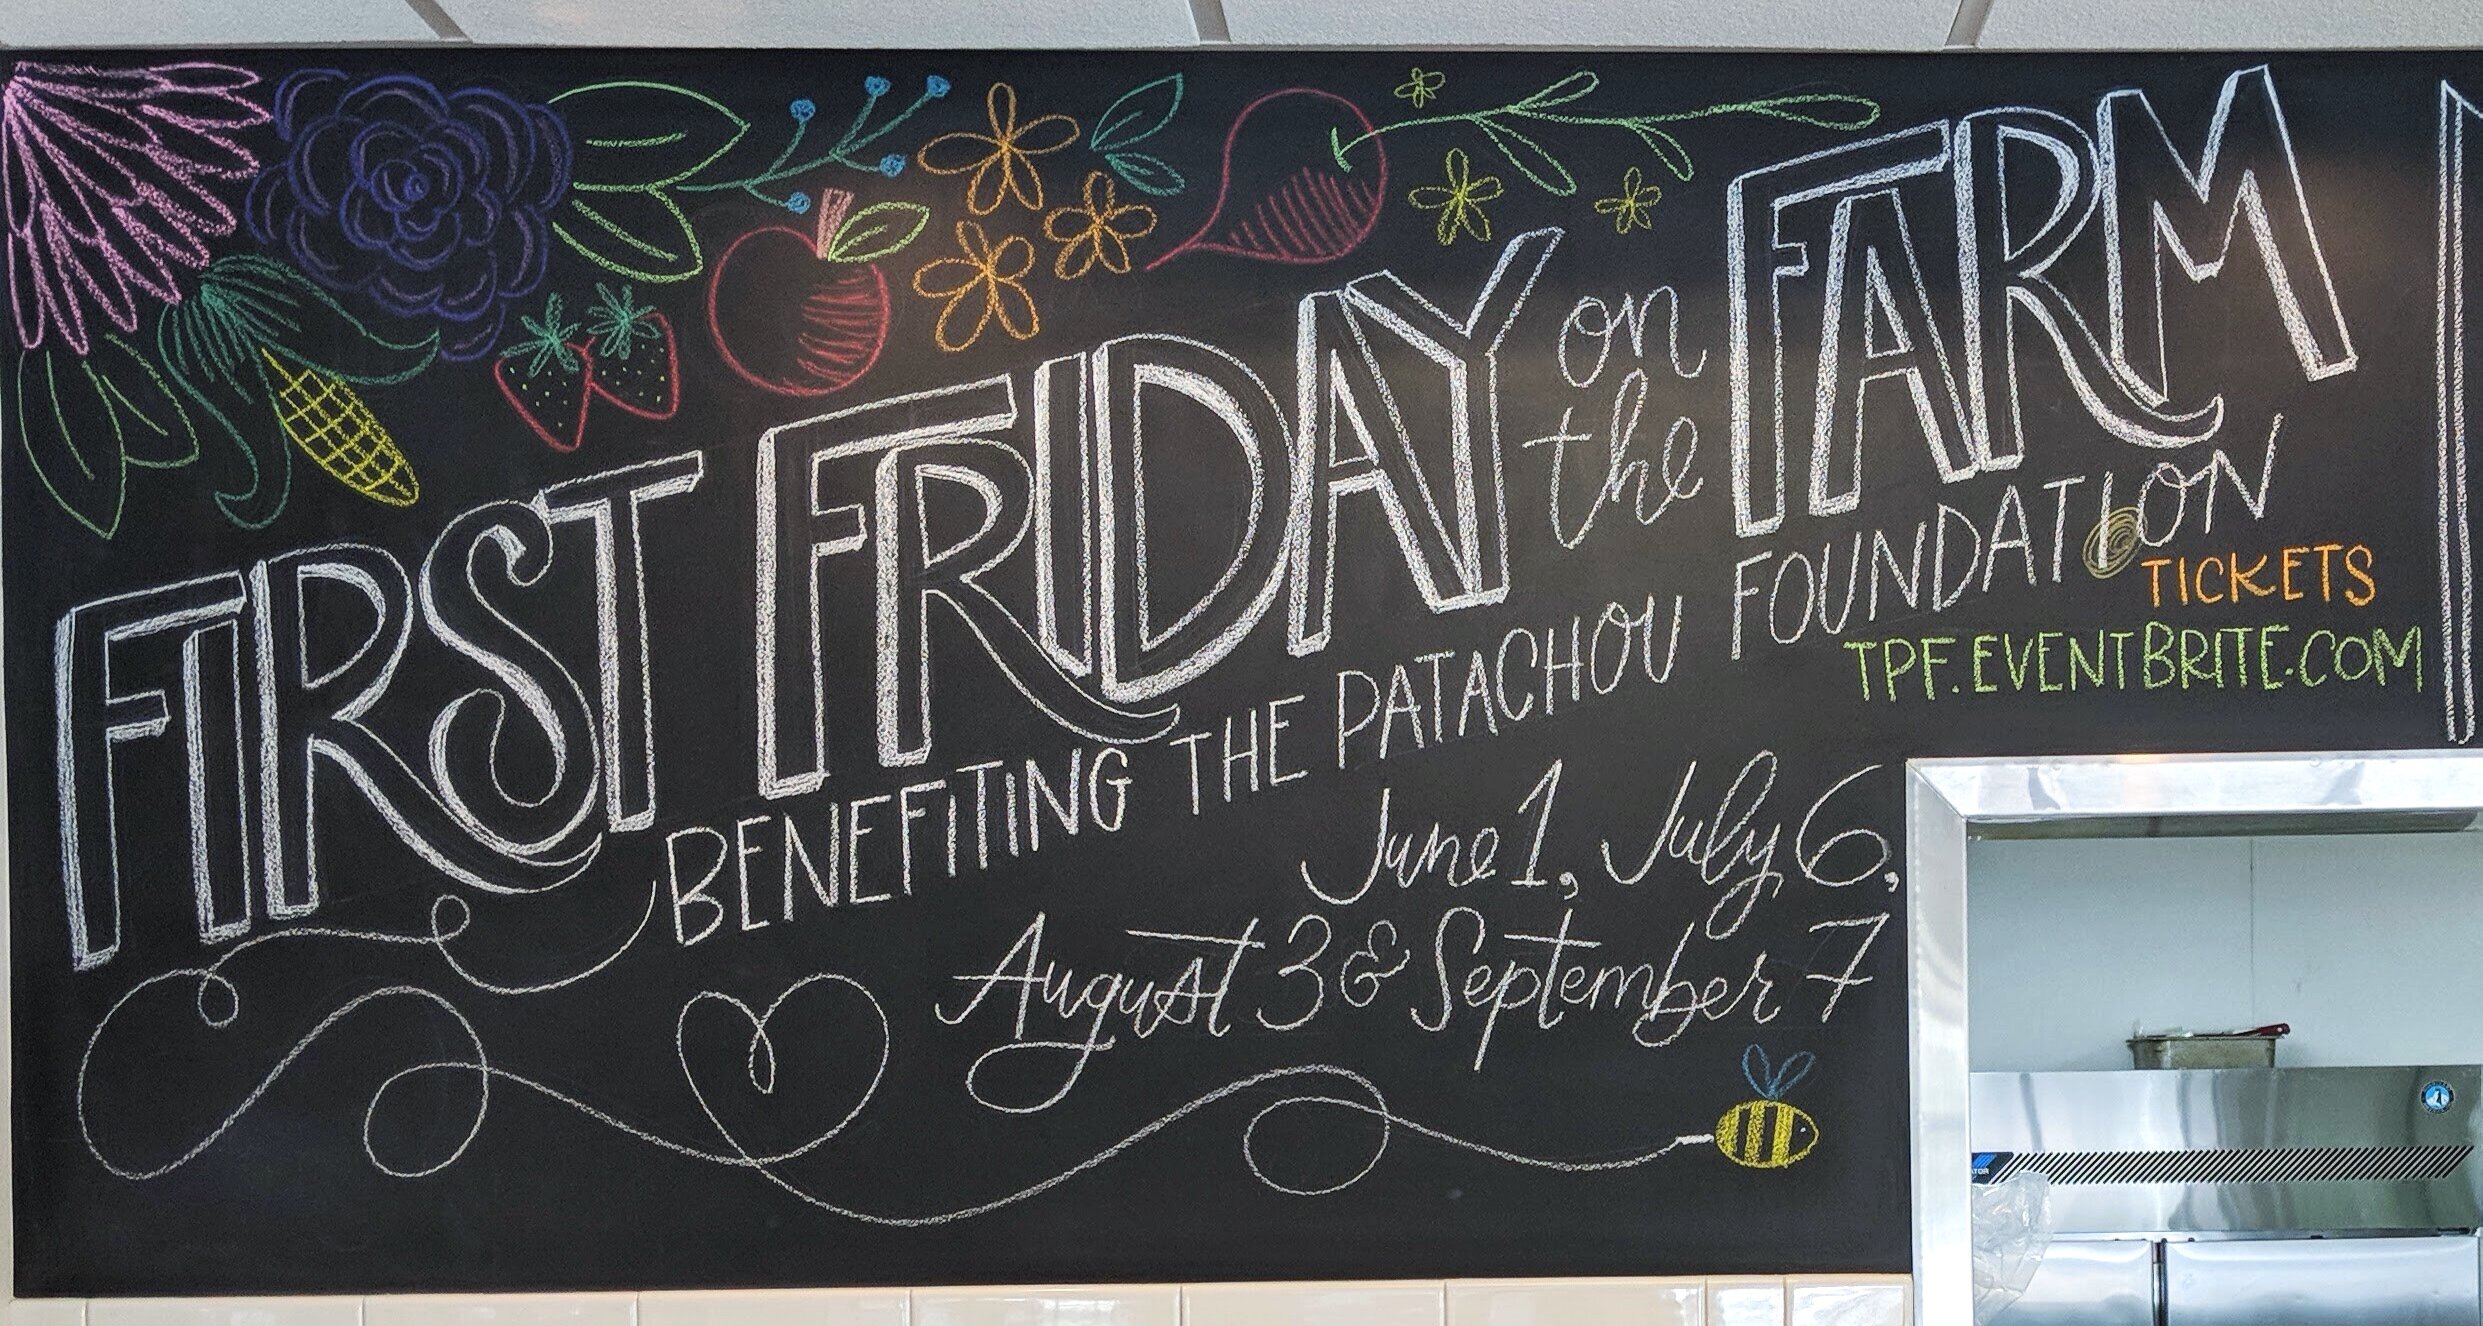 FIRST FRIDAY on the FARM
BENEFITING THE PATACHOU FOUNDATION
TICKETS
TPF.EVENTBRITE.COM
June 1, July 6,
August 3 & September 7